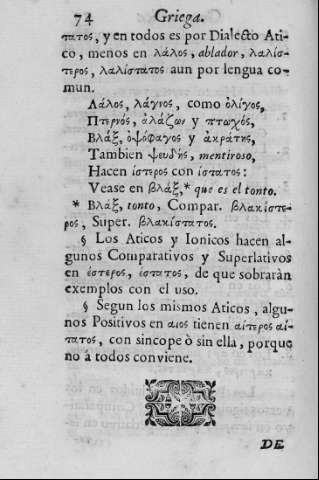 74 Griega.
τατος, y en todos es por Dialecto Ati-
co, menos en λάλος, ablador, λαλίσ-
τερος, λαλίστατος aun por lengua co-
mun.
Λάλος, λάγιος, como ὀλίγος,
Πτερνός, ἀλάζων y πτωχός,
Βλάξ, ὀψόφαγος y ἀκράτης,
Tambien ψευδής, mentiroso,
Hacen ίστερος con ίστατος:
Vease en βλάξ,* que es el tonto.
* Βλάξ, tonto, Compar. βλακίστε-
ρος, Super. βλακίστατος.
§ Los Aticos y Ionicos hacen al-
gunos Comparativos y Superlativos
en έστερος, έστατος, de que sobraràn
exemplos con el uso.
§ Segun los mismos Aticos, algu-
nos Positivos en αιος tienen αίτερος αί-
τατος, con sincope ò sin ella, porque
no á todos conviene.
DE